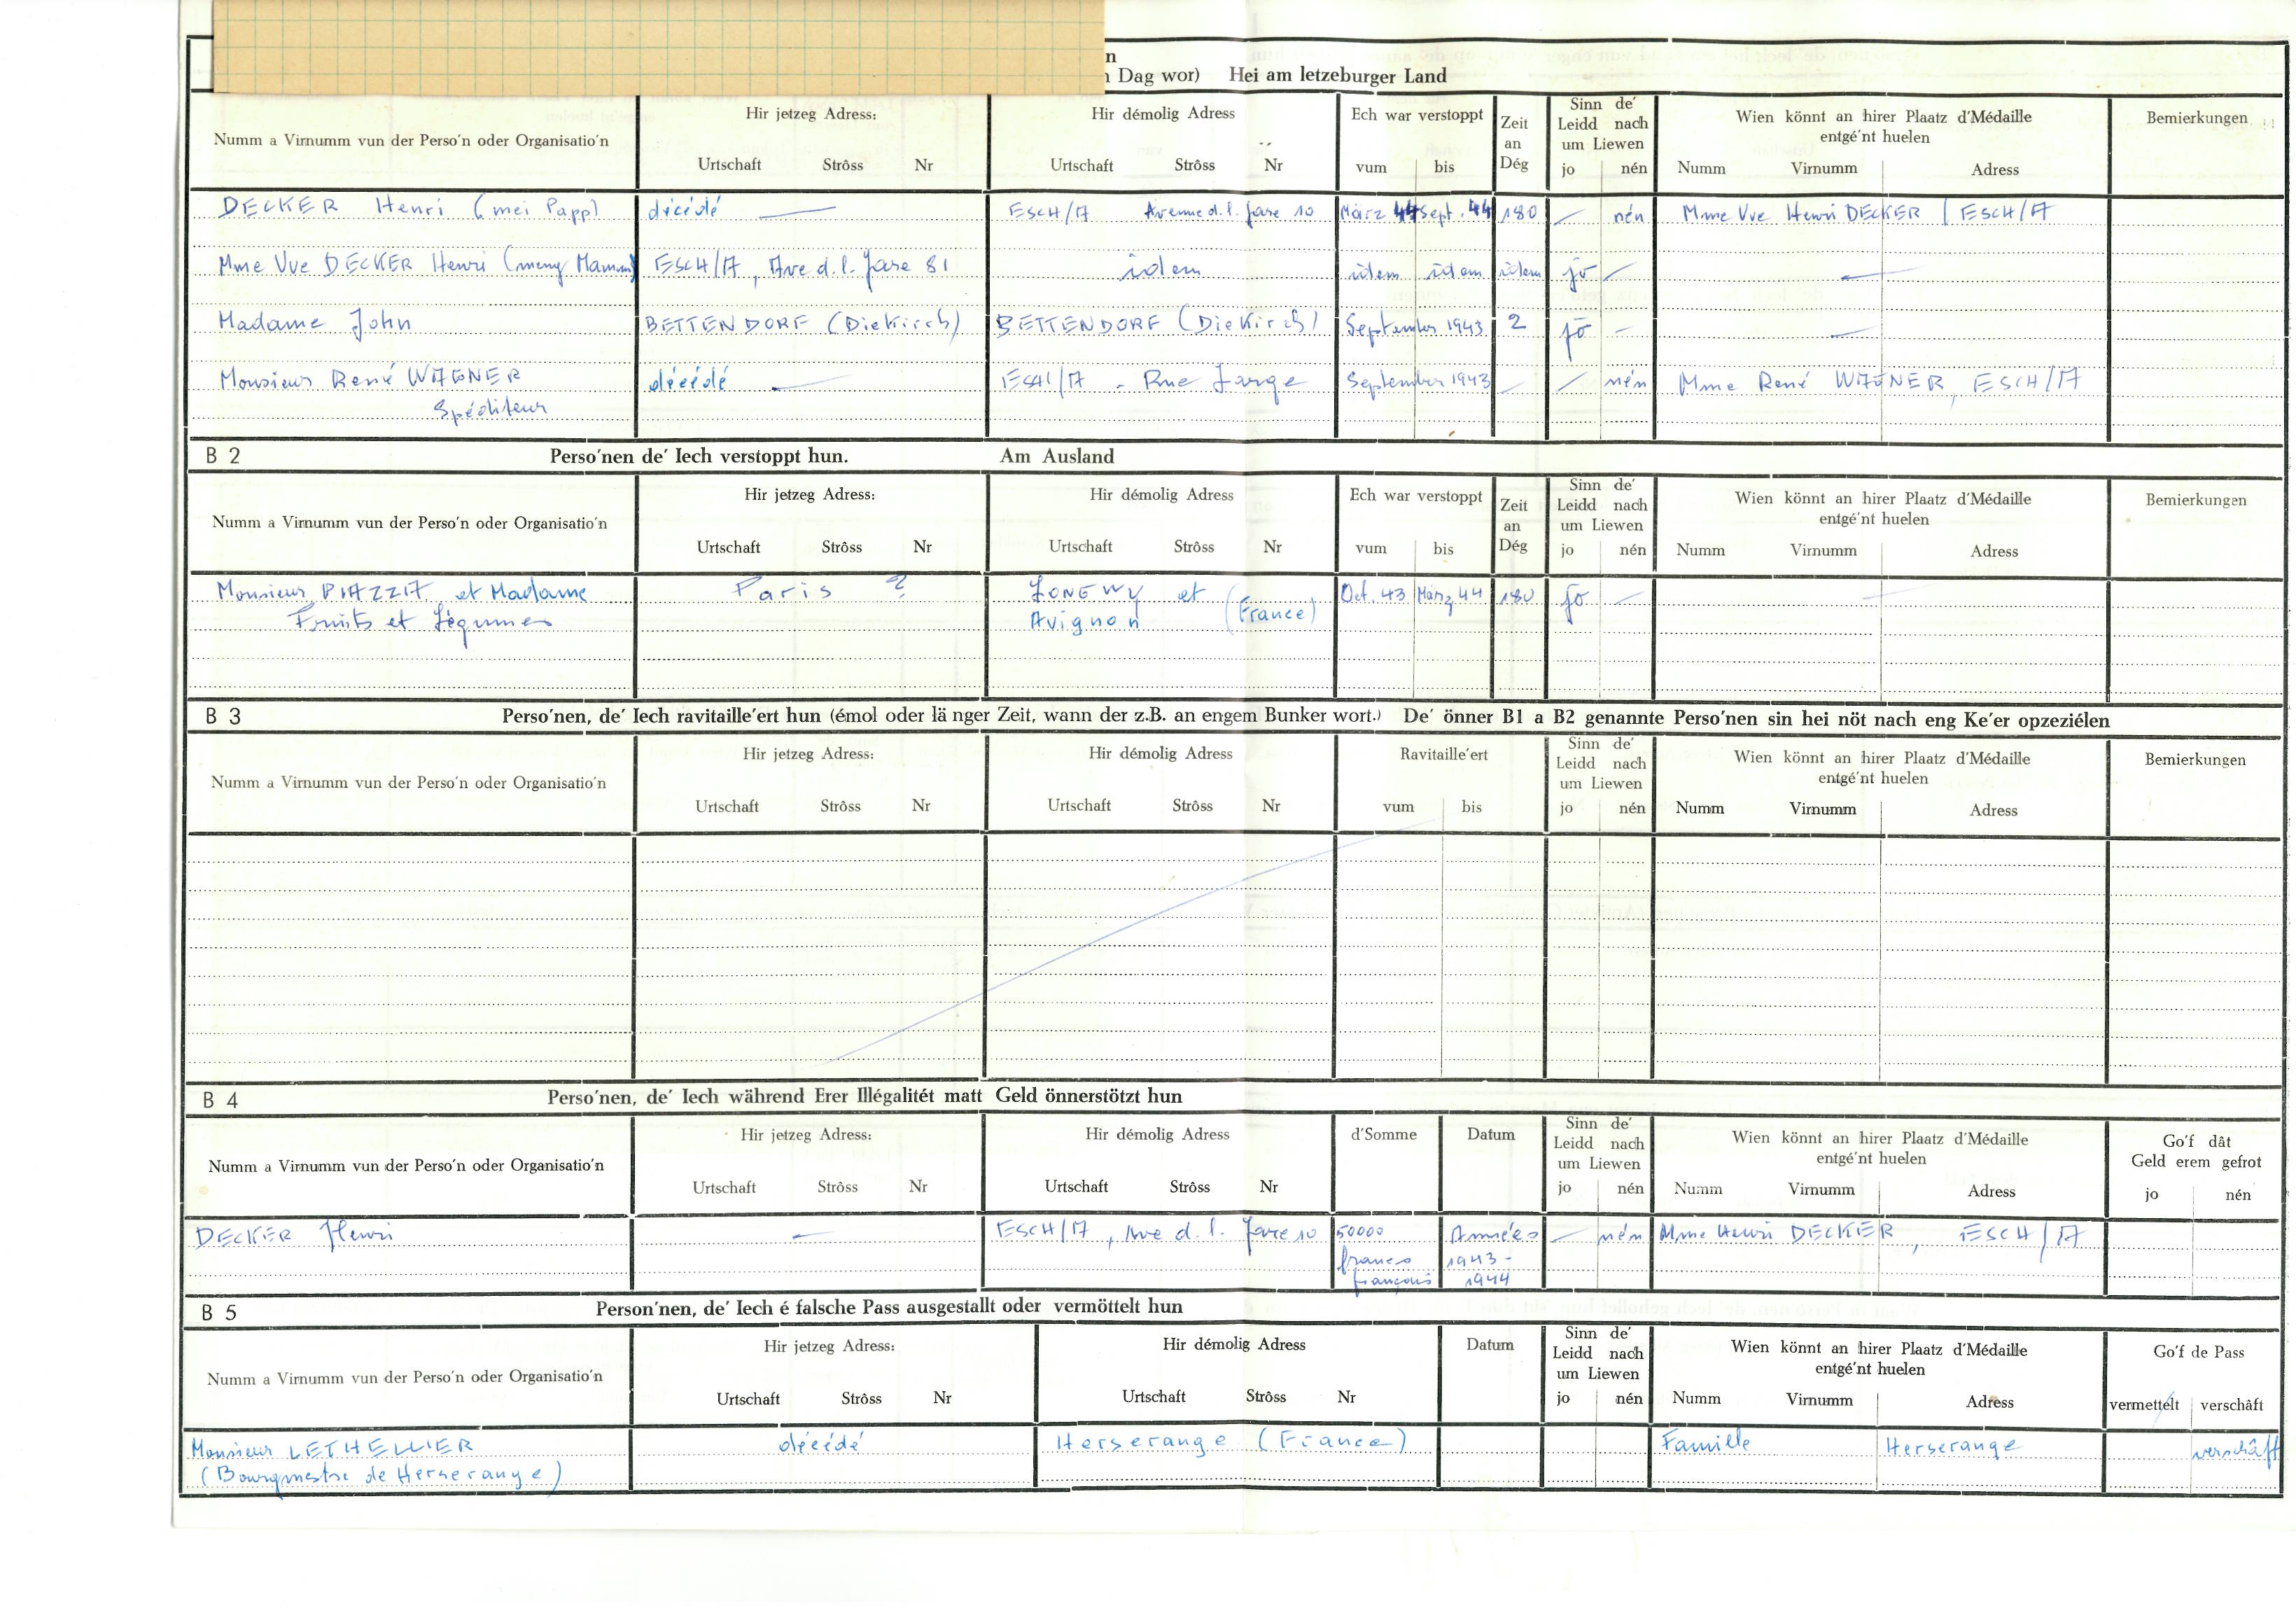 n
n Dag wor) Hei am letzeburger Land
Numm a Virnumm vun der Perso'n oder Organisatio'n
Hir jetzeg Adress:
Urtschaft Strôss Nr
Hir démolig Adress
Urtschaft Strôss Nr
Ech war verstoppt
vum bis
Zeit
an
Dég
Sinn de'
Leidd nach
um Liewen
jo nén
Wien könnt an hirer Plaatz d'Médaille
entgé'nt huelen
Numm Virnumm Adress
Bemierkungen
DECKER Henri (mei Papp) décédé — ESCH/A Avenue d. l. Gare 10 März 44 Sept. 44 180 — nén Mme Vve Henri DECKER ESCH/A
Mme Vve DECKER Henri (meng Mamm) ESCH/A, Ave d. l. Gare 81 idem idem idem idem jo — —
Madame John BETTENDORF (Diekirch) BETTENDORF (Diekirch) September 1943 2 jo — —
Monsieur René WAGNER décédé — ESCH/A - Rue Large September 1943 — — nén Mme René WAGNER, ESCH/A
Spéditeur
B 2 Perso'nen de' Iech verstoppt hun. Am Ausland
Numm a Virnumm vun der Perso'n oder Organisatio'n
Hir jetzeg Adress:
Urtschaft Strôss Nr
Hir démolig Adress
Urtschaft Strôss Nr
Ech war verstoppt
vum bis
Zeit
an
Dég
Sinn de'
Leidd nach
um Liewen
jo nén
Wien könnt an hirer Plaatz d'Médaille
entgé'nt huelen
Numm Virnumm Adress
Bemierkungen
Monsieur PIAZZA et Madame Paris ? LONGWY et (France) Oct. 43 März 44 180 jo — —
Fruits et Légumes Avignon
B 3 Perso'nen, de' Iech ravitaille'ert hun (émol oder lä nger Zeit, wann der z.B. an engem Bunker wort.) De' önner B1 a B2 genannte Perso'nen sin hei nöt nach eng Ke'er opzeziélen
Numm a Virnumm vun der Perso'n oder Organisatio'n
Hir jetzeg Adress:
Urtschaft Strôss Nr
Hir démolig Adress
Urtschaft Strôss Nr
Ravitaille'ert
vum bis
Sinn de'
Leidd nach
um Liewen
jo nén
Wien könnt an hirer Plaatz d'Médaille
entgé'nt huelen
Numm Virnumm Adress
Bemierkungen
B 4 Perso'nen, de' Iech während Erer Illégalitét matt Geld önnerstötzt hun
Numm a Virnumm vun der Perso'n oder Organisatio'n
Hir jetzeg Adress:
Urtschaft Strôss Nr
Hir démolig Adress
Urtschaft Strôss Nr
d'Somme
Datum
Sinn de'
Leidd nach
um Liewen
jo nén
Wien könnt an hirer Plaatz d'Médaille
entgé'nt huelen
Numm Virnumm Adress
Go'f dât
Geld erem gefrot
jo nén
DECKER Henri — ESCH/A, Ave d. l. Gare 10 50000 Années — nén Mme Henri DECKER, ESCH/A
francs 1943 -
français 1944
B 5 Person'nen, de' Iech é falsche Pass ausgestallt oder vermöttelt hun
Numm a Virnumm vun der Perso'n oder Organisatio'n
Hir jetzeg Adress:
Urtschaft Strôss Nr
Hir démolig Adress
Urtschaft Strôss Nr
Datum
Sinn de'
Leidd nach
um Liewen
jo nén
Wien könnt an hirer Plaatz d'Médaille
entgé'nt huelen
Numm Virnumm Adress
Go'f de Pass
vermettélt verschâft
Monsieur LETHELLIER décédé Herserange (France) Famille Herserange verschâft
(Bourgmestre de Herserange)